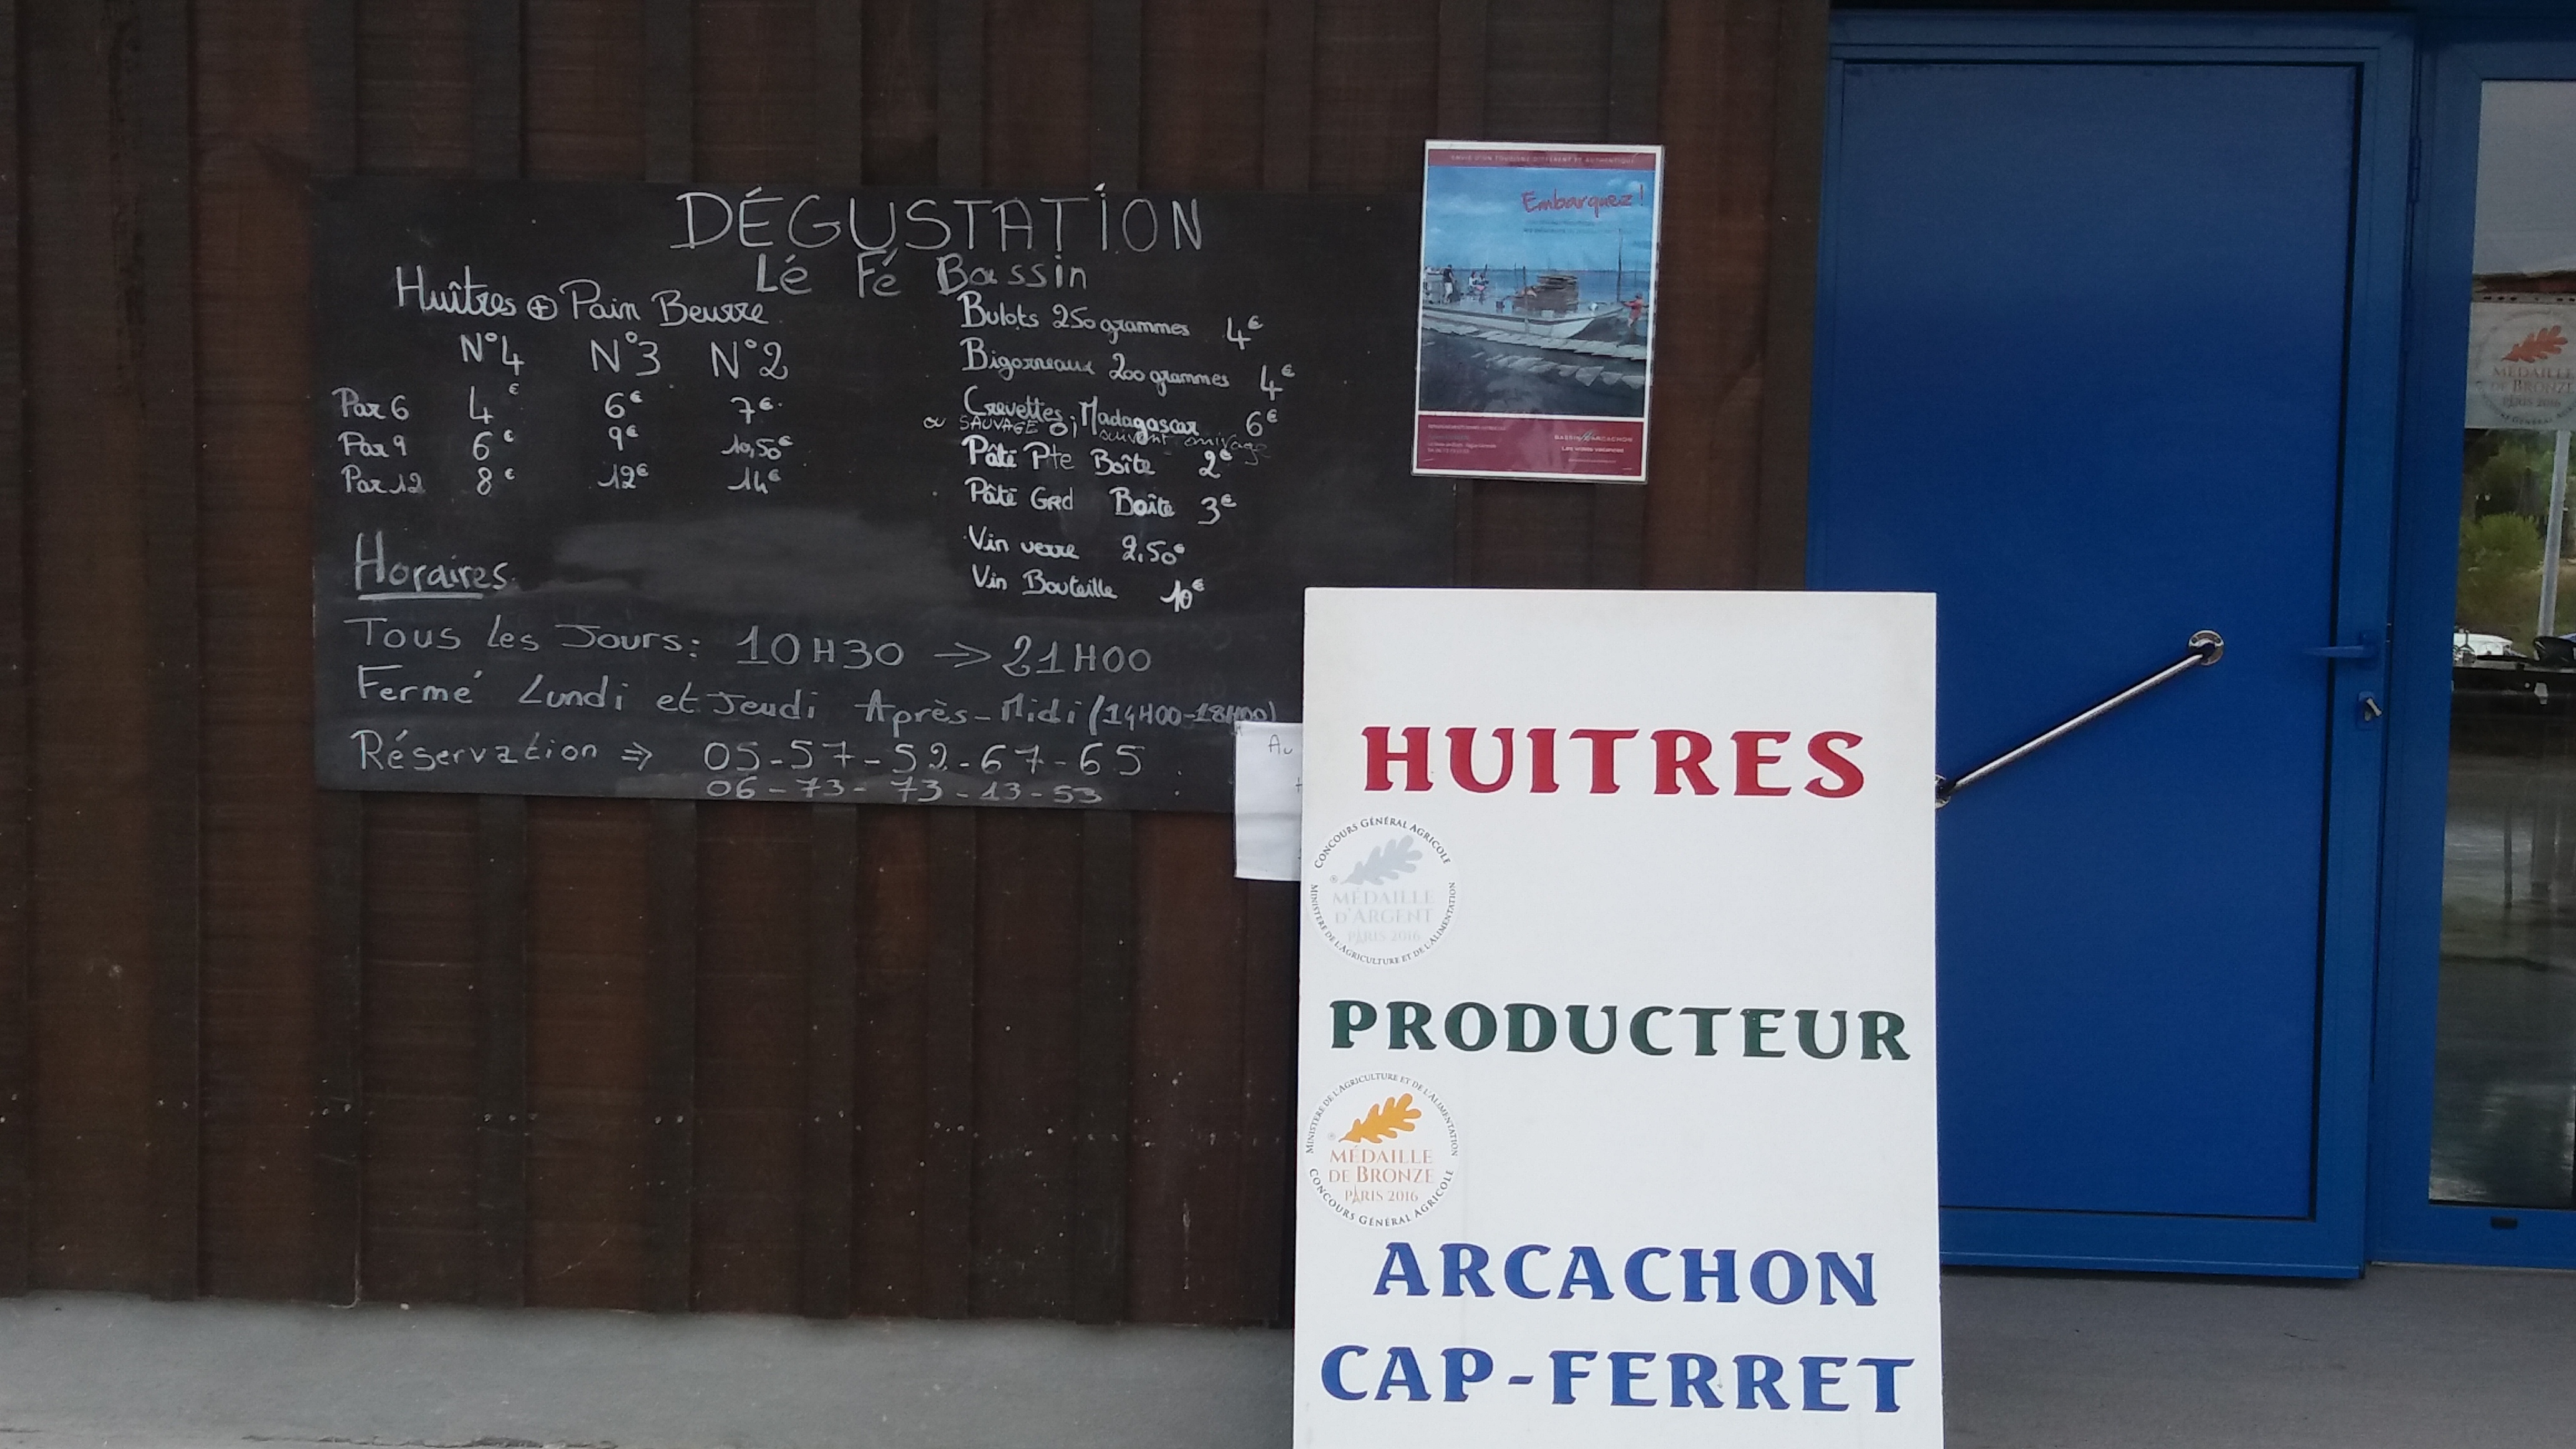 DÉGUSTATION
Lé Fé Bassin
Huîtres + Pain Beurre
N°4 N°3 N°2
Par 6 4€ 6€ 7€
Par 9 6€ 9€ 10,50€
Par 12 8€ 12€ 14€
Bulots 250 grammes 4€
Bigorneaux 200 grammes 4€
Crevettes Madagascar 6€
ou SAUVAGE suivant arrivage
Pâté Pte Boîte 2€
Pâté Grd Boîte 3€
Vin verre 2,50€
Vin Bouteille 10€
Horaires
Tous les Jours: 10H30 → 21H00
Fermé Lundi et Jeudi Après-Midi (14H00-18H00)
Réservation ⇒ 05-57-52-67-65
06-73-73-13-53
Au
Embarquez!
BASSIN ARCACHON
HUITRES
CONCOURS GÉNÉRAL AGRICOLE
MÉDAILLE
D'ARGENT
PARIS 2016
MINISTÈRE DE L'AGRICULTURE ET DE L'ALIMENTATION
PRODUCTEUR
MINISTÈRE DE L'AGRICULTURE ET DE L'ALIMENTATION
MÉDAILLE
DE BRONZE
PARIS 2016
CONCOURS GÉNÉRAL AGRICOLE
ARCACHON
CAP-FERRET
MÉDAILLE
DE BRONZE
PARIS 2016